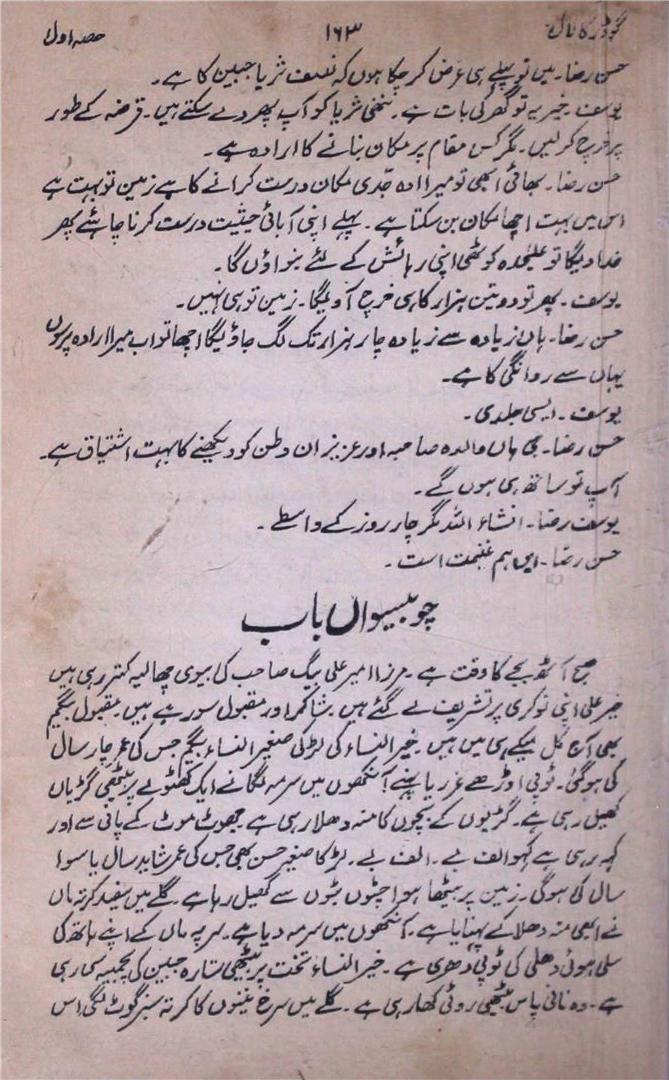 گودڑ کا لال ۱۶۳ حصہ اول
حسن رضا۔ میں تو پہلے ہی عرض کر چکا ہوں کہ نصف ثریا جبین کا ہے۔
یوسف۔ خیر یہ تو گھر کی بات ہے۔ ننھی ثریا کو آپ پھر دے سکتے ہیں۔ قرضہ کے طور
پر خرچ کر لیں۔ مگر کس مقام پر مکان بنانے کا ارادہ ہے۔
حسن رضا۔ بھائی ابھی تو میرا ارادہ جدی مکان درست کرانے کا ہے زمین تو بہت ہے
اس میں بہت اچھا مکان بن سکتا ہے۔ پہلے اپنی آبائی حیثیت درست کرنا چاہئے پھر
خدا دیگا تو علیٰحدہ کوٹھی اپنی رہائش کے لئے بنواؤں گا۔
یوسف۔ پھر تو دو تین ہزار کا ہی خرچ آویگا۔ زمین تو ہی نہیں۔
حسن رضا۔ ہاں زیادہ سے زیادہ چار ہزار تک لگ جاویگا اچھا تو اب میرا ارادہ پرسوں
یہاں سے روانگی کا ہے۔
یوسف۔ ایسی جلدی۔
حسن رضا۔ جی ہاں والدہ صاحبہ اور عزیزان وطن کو دیکھنے کا بہت اشتیاق ہے۔
آپ تو ساتھ ہی ہوں گے۔
یوسف رضا۔ انشاء اللہ مگر چار روز کے واسطے۔
حسن رضا۔ ایں ہم غنیمت است۔
چوبیسواں باب
صبح آٹھ بجے کا وقت ہے۔ مرزا امیر علی بیگ صاحب کی بیوی چھالیہ کتر رہی ہیں
خیر علی اپنی نوکری پر تشریف لے گئے ہیں۔ شاکر اور مقبول سو رہے ہیں۔ مقبول بیگم
بھی آج کل میکے ہی میں ہیں۔ خیر النساء کی لڑکی صغیر النساء بیگم جس کی عمر چار سال
کی ہو گئی۔ ٹوپی اوڑھے غرریا پہنے آنکھوں میں سرمہ لگائے ایک کھٹولے پر بیٹھی گڑیاں
کھیل رہی ہے۔ گڑیوں کے بچوں کا منہ دھلا رہی ہے۔ جھوٹ موٹ کے پانی سے اور
کہہ رہی ہے کہو الف بے۔ الف بے۔ لڑکا صغیر حسن بھی جس کی عمر شاید سال یا سوا
سال کی ہوگی۔ زمین پر بیٹھا ہوا چٹوں بٹوں سے کھیل رہا ہے۔ گلے میں سفید کرتہ ماں
نے ابھی منہ دھلا کے پہنایا ہے۔ آنکھوں میں سرمہ دیا ہے۔ سر پہ ماں کے اپنے ہاتھ کی
سلی ہوئی دھلی کی ٹوپی دھری ہے۔ خیر النساء تخت پر بیٹھی ستارہ جبین کی سی رہی
ہے۔ وہ نانی پاس بیٹھی روٹی کھا رہی ہے۔ گلے میں سرخ کا کرتہ سبز گوٹ لگی اس